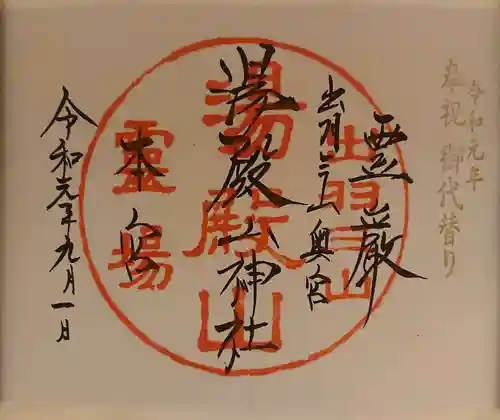 奉祝 御代替り
令和元年
霊厳
出羽三山奥宮
湯殿山神社
本宮
令和元年九月一日
出羽三山
湯殿山
霊場